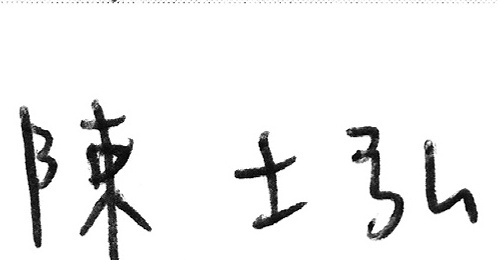 陳士弘